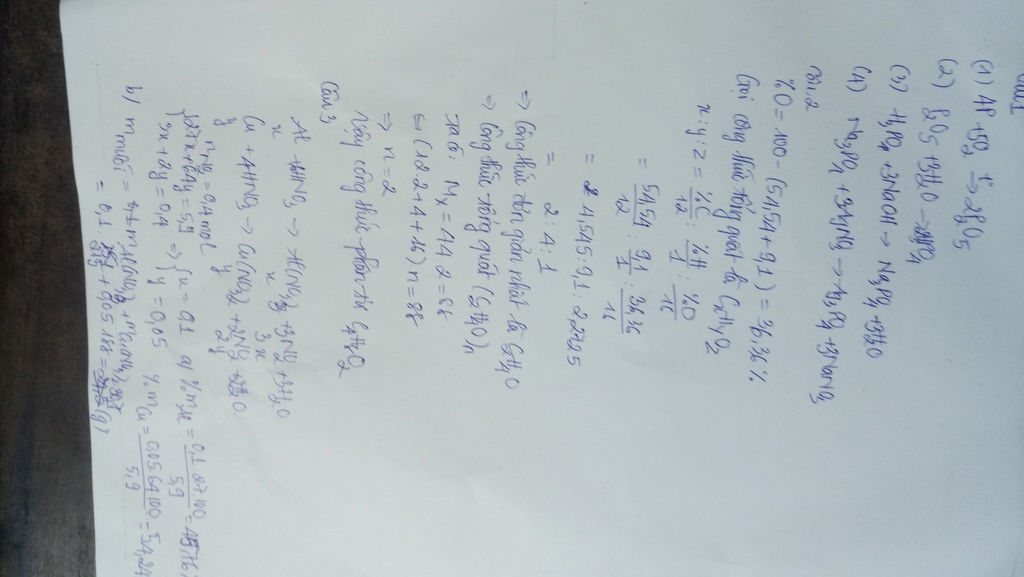 Câu 1
(1) 4P + 5O2 t°→ 2P2O5
(2) P2O5 + 3H2O →
(3) H3PO4 + 3NaOH → Na3PO4 + 3H2O
(4) Na3PO4 + 3AgNO3 → Ag3PO4 + 3NaNO3
Câu 2
%O = 100 - (54,54 + 9,1) = 36,36%
Gọi công thức tổng quát là CxHyOz
x : y : z = %C/12 : %H/1 : %O/16
= 54,54/12 : 9,1/1 : 36,36/16
= 4,545 : 9,1 : 2,2725
= 2 : 4 : 1
⇒ Công thức đơn giản nhất là C2H4O
⇒ Công thức tổng quát (C2H4O)n
MX = 44.2 = 88
(12.2 + 4 + 16) n = 88
⇒ n = 2
Vậy công thức phân tử C4H8O2
Câu 3
Al + 6HNO3 → Al(NO3)3 + 3NO2 + 3H2O
x x 3x
Cu + 4HNO3 → Cu(NO3)2 + 2NO2 + 2H2O
y y 2y
nNO2 = 0,4 mol
{27x + 64y = 5,9
3x + 2y = 0,4 ⇒ {x = 0,1
y = 0,05
a/ %mAl = 0,1.27.100/5,9 = 45,76%
%mCu = 0,05.64.100/5,9 = 54,24
b/ mmuối = mAl(NO3)3 + mCu(NO3)2
= 0,1.213 + 0,05.188 = (g)